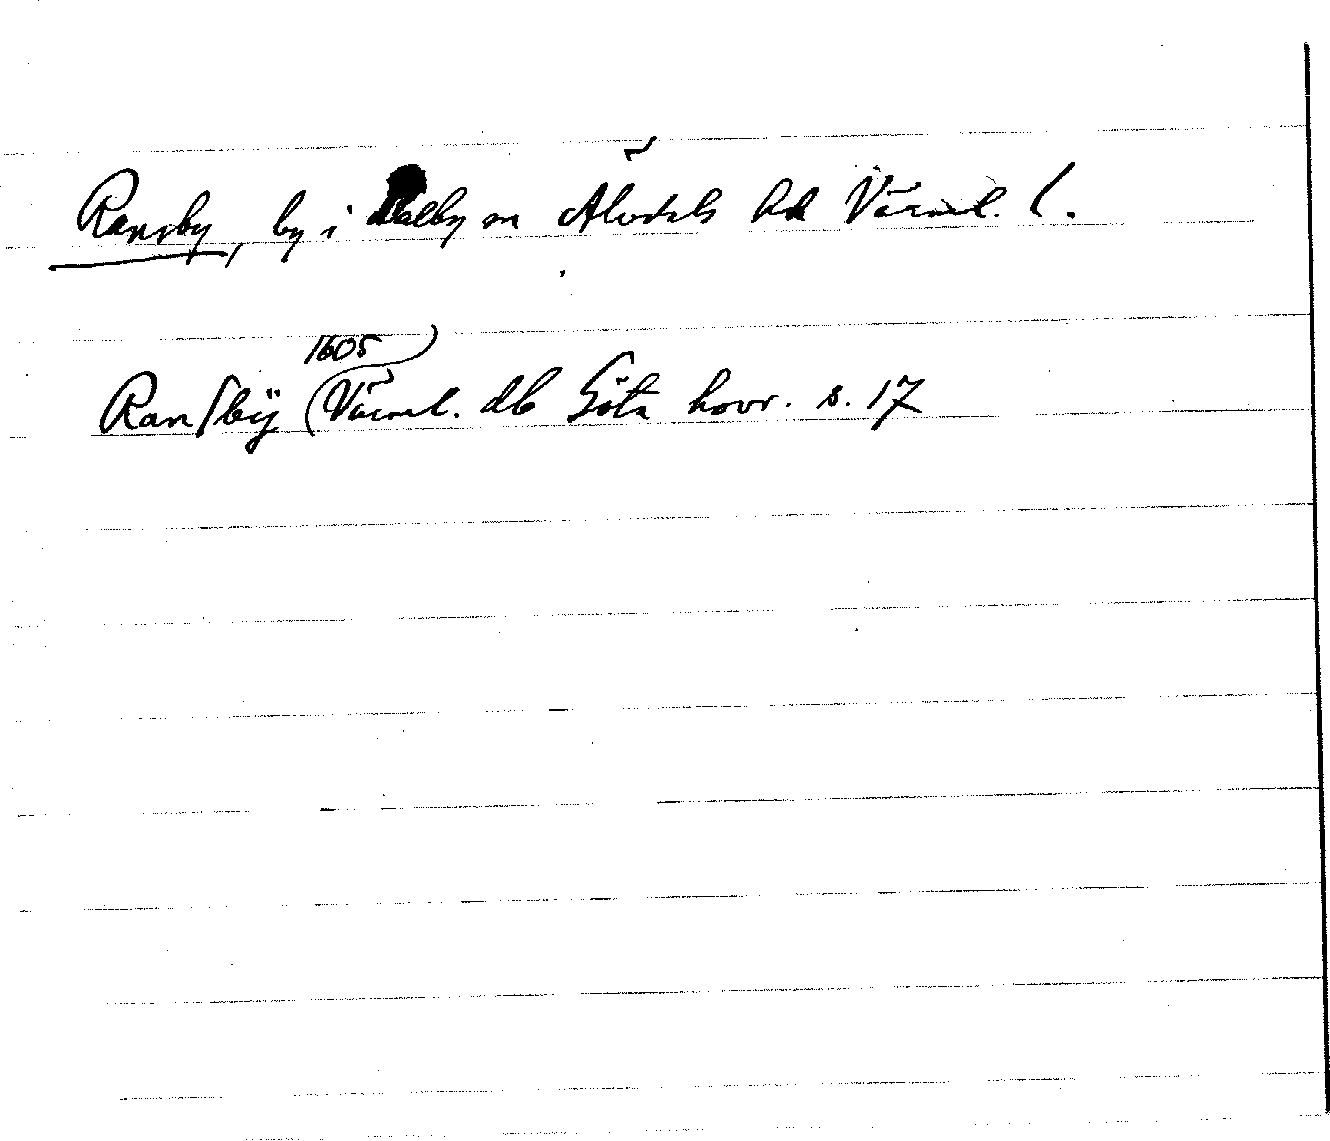 Ransby, by i Dalby sn Älvdals hd Värml. l.
1605
Ranſbÿ (Värml. db Göta hovr. s. 17